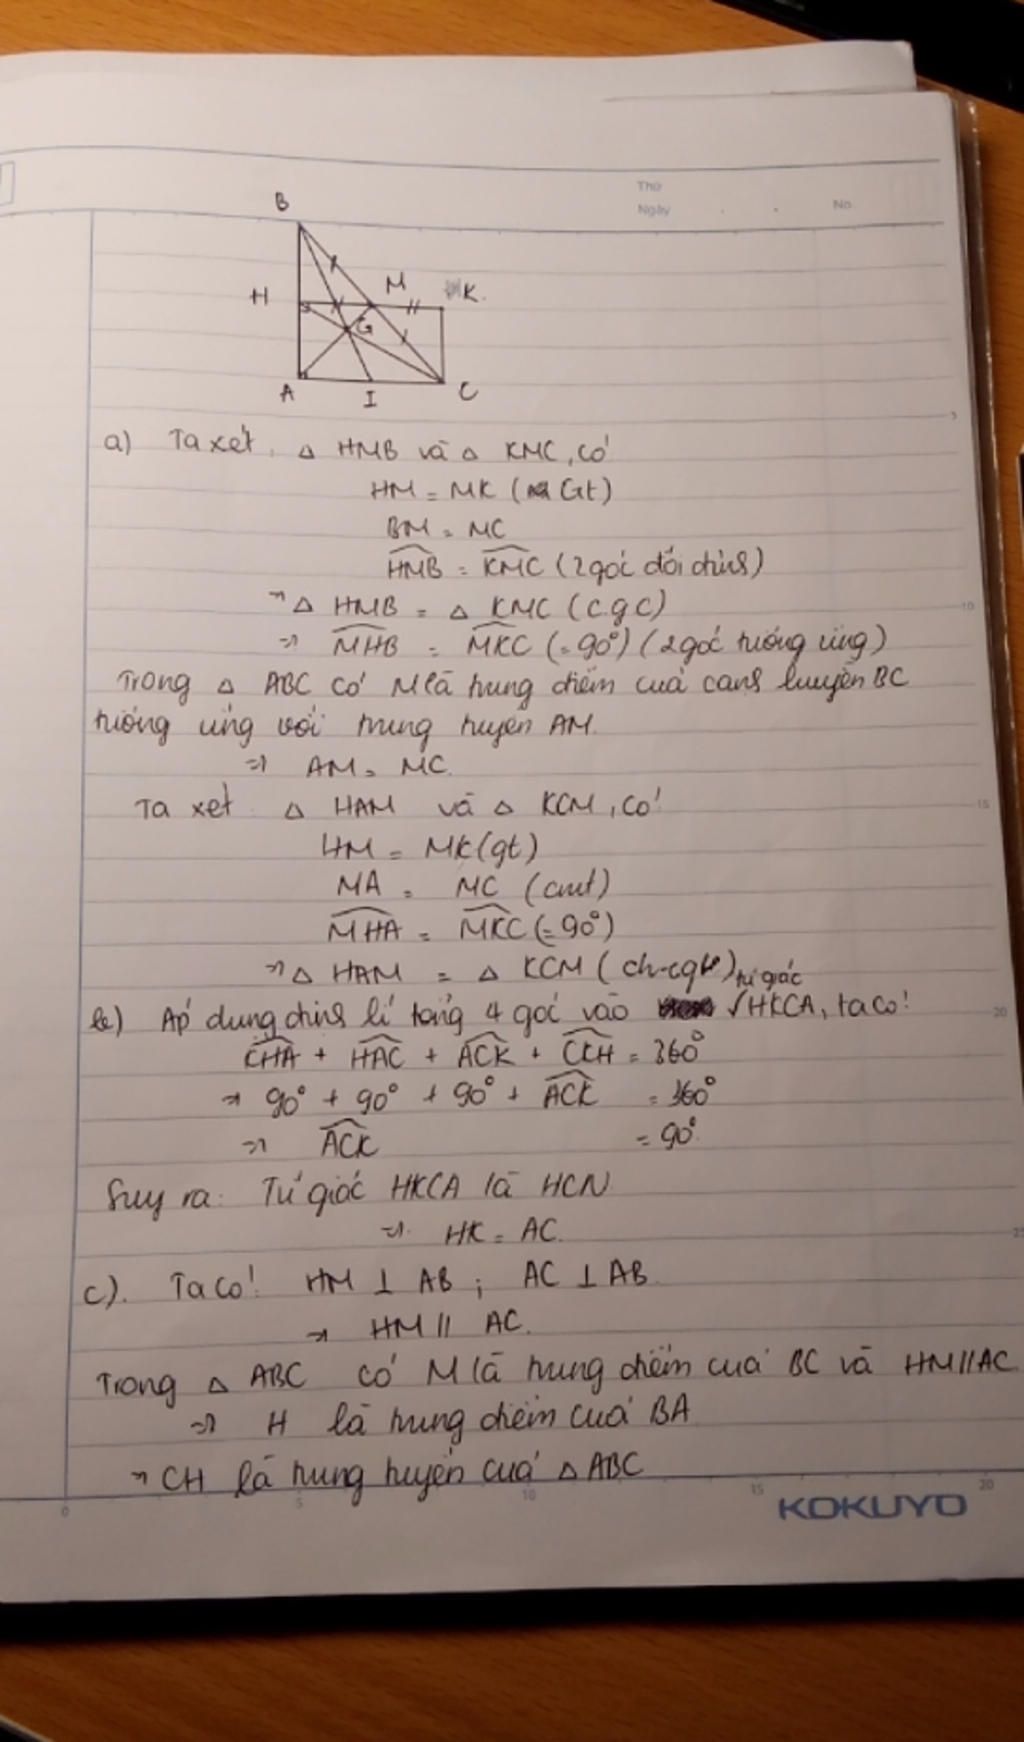 Thứ
Ngày . . No
B
H M K.
G
A I C
a) Ta xét △ HMB và △ KMC, có
HM = MK (Gt)
BM = MC
HMB = KMC (2 góc đối đỉnh)
⇒ △ HMB = △ KMC (c g c)
⇒ MHB = MKC (= 90°) (2 góc tương ứng)
Trong △ ABC có M là trung điểm của cạnh huyền BC
tương ứng với trung tuyến AM.
⇒ AM = MC.
Ta xét △ HAM và △ KCM, có
HM = MK (gt)
MA = MC (cmt)
MHA = MKC (= 90°)
⇒ △ HAM = △ KCM (ch-cgv)
b) Áp dụng định lí tổng 4 góc vào tứ giác HKCA, ta có:
CHA + HAC + ACK + CKH = 360°
⇒ 90° + 90° + 90° + ACK = 360°
⇒ ACK = 90°
Suy ra: Tứ giác HKCA là HCN
⇒ HK = AC.
c). Ta có: HM ⊥ AB ; AC ⊥ AB
⇒ HM // AC.
Trong △ ABC có M là trung điểm của BC và HM // AC
⇒ H là trung điểm của BA
⇒ CH là trung tuyến của △ ABC
KOKUYO